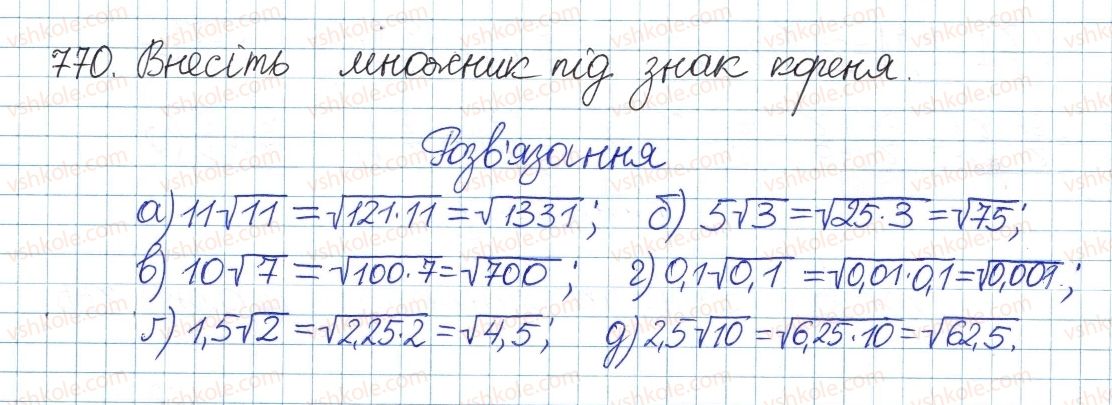 770. Внесіть множник під знак кореня.
Розв'язання
а) 11√11 = √121·11 = √1331; б) 5√3 = √25·3 = √75;
в) 10√7 = √100·7 = √700; г) 0,1√0,1 = √0,01·0,1 = √0,001;
ґ) 1,5√2 = √2,25·2 = √4,5; д) 2,5√10 = √6,25·10 = √62,5.